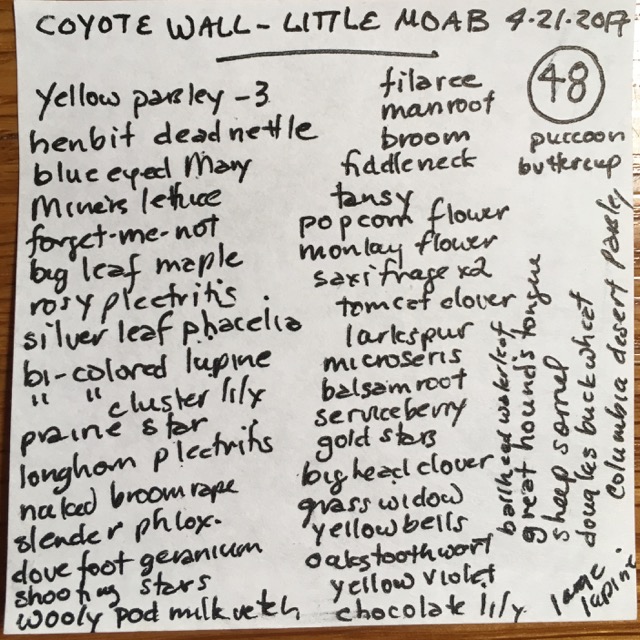 COYOTE WALL - LITTLE MOAB 4.21.2017
48
yellow parsley -3
henbit deadnettle
blue eyed Mary
Miners lettuce
forget-me-not
big leaf maple
rosy plectritis
silver leaf phacelia
bi-colored lupine
" " cluster lily
prairie star
longhorn plectritis
naked broomrape
slender phlox.
dove foot geranium
shooting stars
wooly pod milkvetch
filaree
manroot
broom
fiddleneck
tansy
popcorn flower
monkey flower
saxifrage x2
tomcat clover
larkspur
microseris
balsamroot
serviceberry
gold stars
big head clover
grass widow
yellow bells
oakstoothwort
yellow violet
chocolate lily
puccoon
buttercup
ballhead waterleaf
great hound's tongue
sheep sorrel
douglas buckwheat
columbia desert parsley
large
lupine